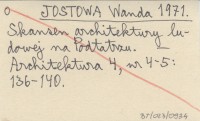 o JOSTOWA Wanda 1971.
Skansen architektury lu-
dowej na Podtatrzu.
Architektura 4, nr 4-5:
136-140.